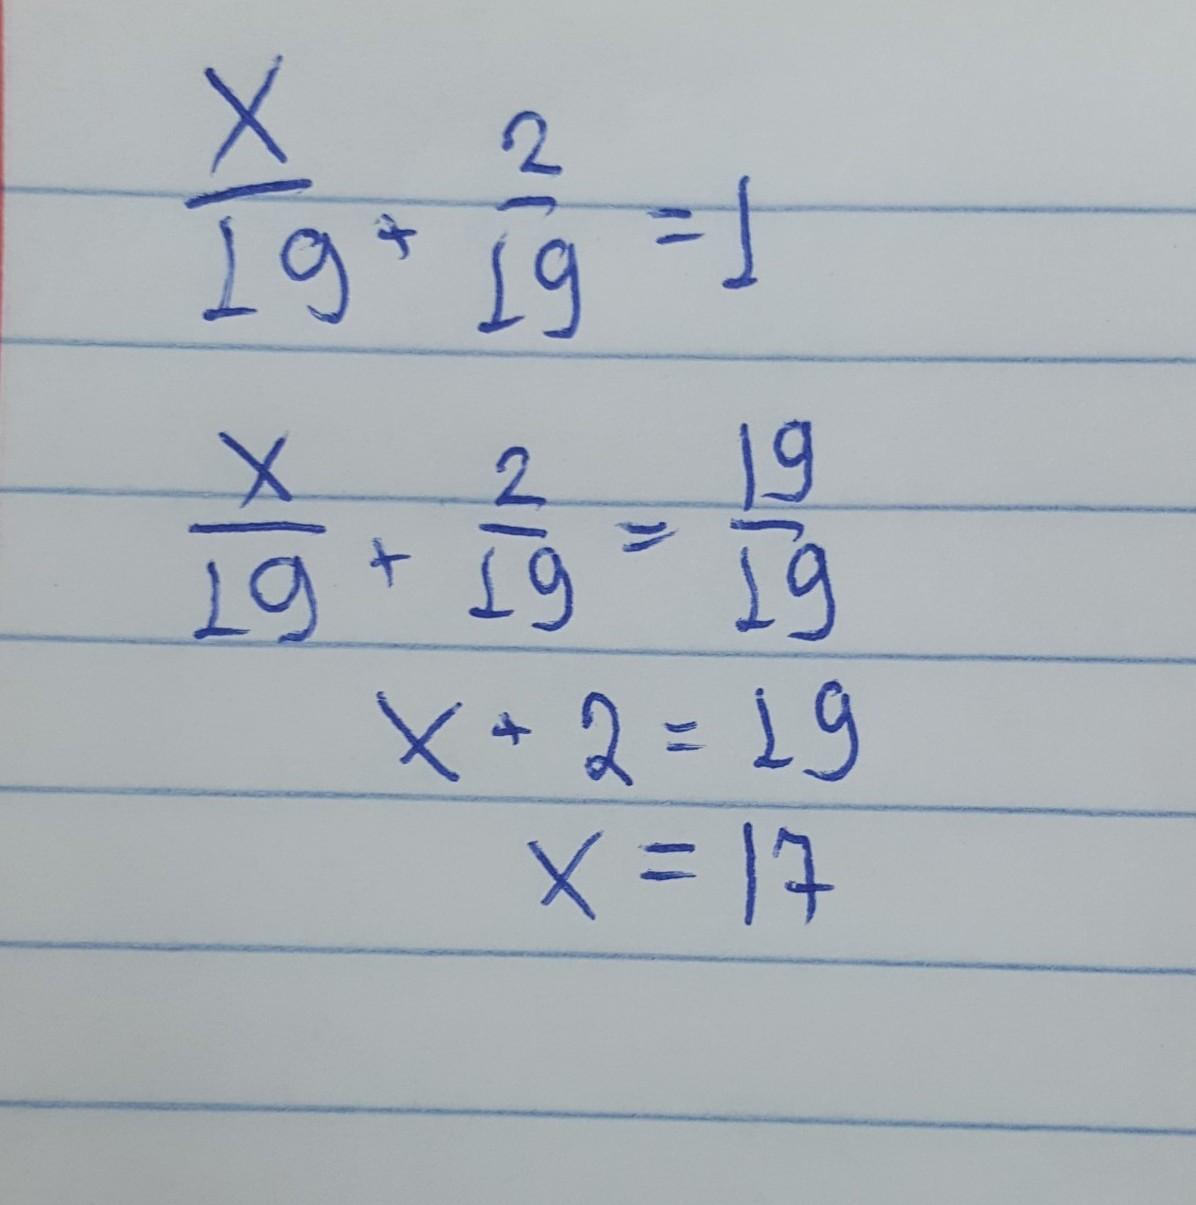 x/19 + 2/19 = 1
x/19 + 2/19 = 19/19
x + 2 = 19
x = 17